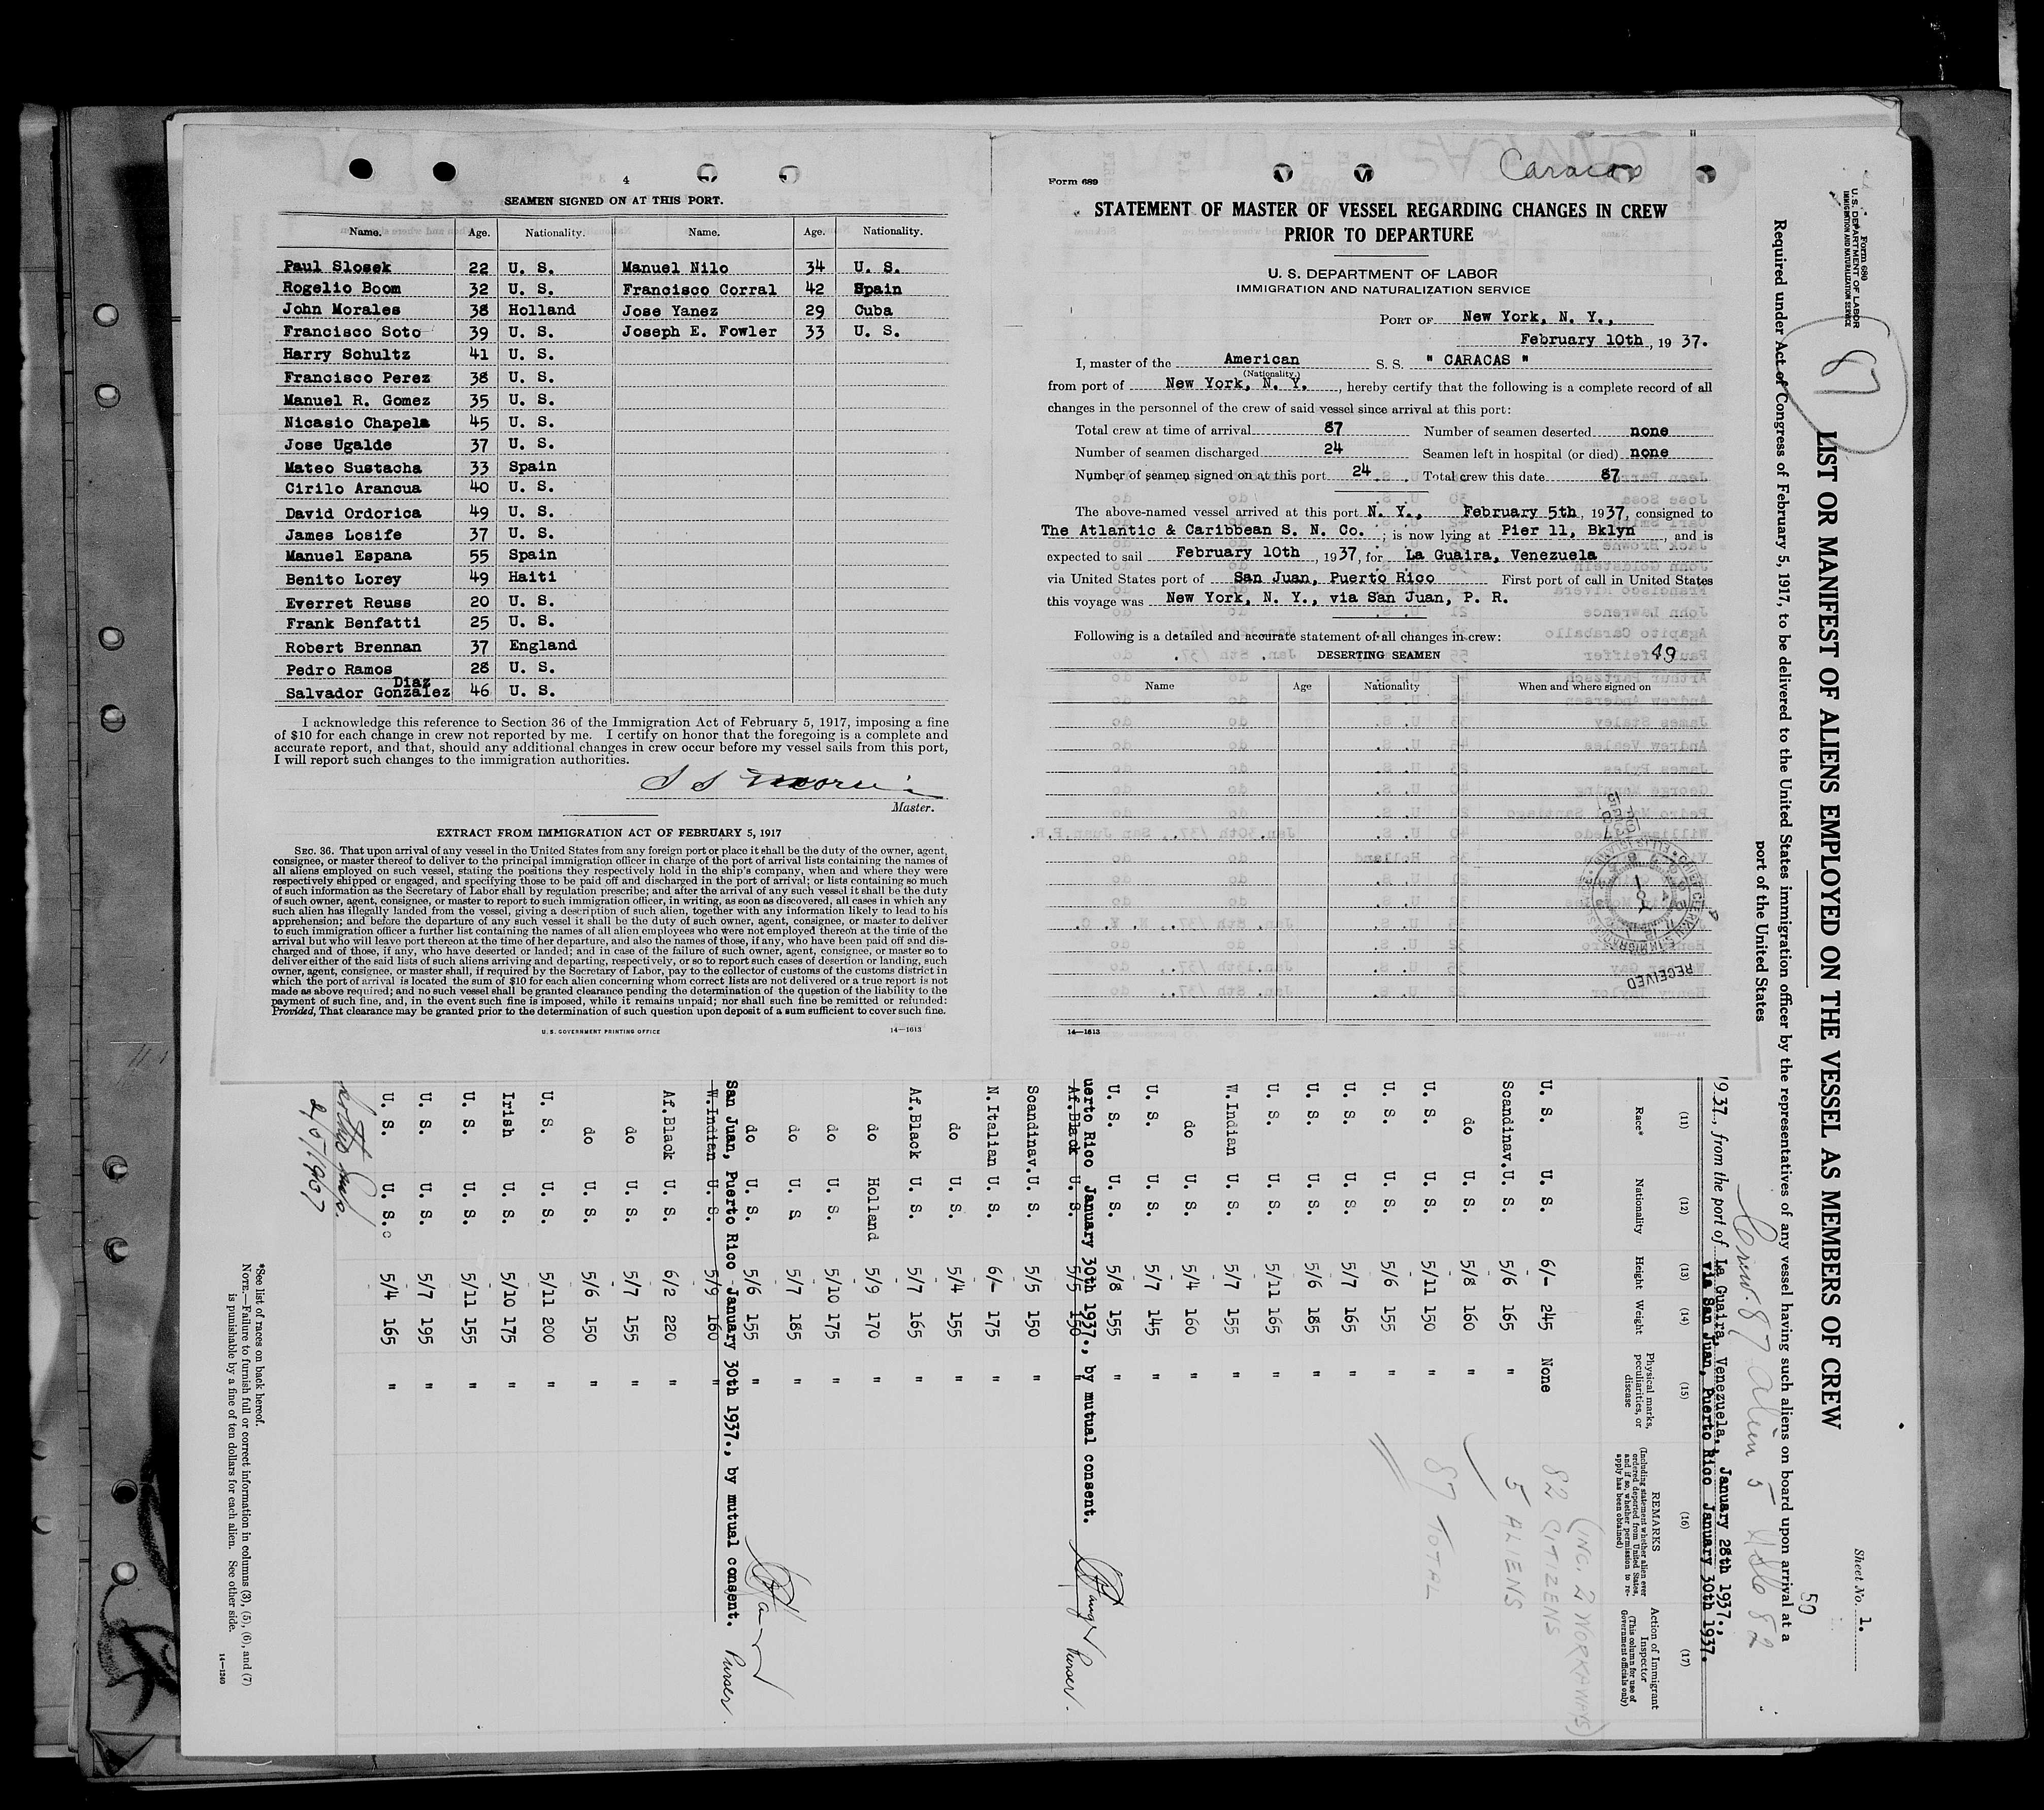 4
SEAMEN SIGNED ON AT THIS PORT.
Name. Age. Nationality. Name. Age. Nationality.
Paul Slosek 22 U. S. Manuel Nilo 34 U. S.
Rogelio Boom 32 U. S. Francisco Corral 42 Spain
John Morales 38 Holland Jose Yanez 29 Cuba
Francisco Soto 39 U. S. Joseph E. Fowler 33 U. S.
Harry Schultz 41 U. S.
Francisco Perez 38 U. S.
Manuel R. Gomez 35 U. S.
Nicasio Chapela 45 U. S.
Jose Ugalde 37 U. S.
Mateo Sustacha 33 Spain
Cirilo Arancua 40 U. S.
David Ordorica 49 U. S.
James Losife 37 U. S.
Manuel Espana 55 Spain
Benito Lorey 49 Haiti
Everret Reuss 20 U. S.
Frank Benfatti 25 U. S.
Robert Brennan 37 England
Pedro Ramos 28 U. S.
Diaz
Salvador Gonzalez 46 U. S.
I acknowledge this reference to Section 36 of the Immigration Act of February 5, 1917, imposing a fine
of $10 for each change in crew not reported by me. I certify on honor that the foregoing is a complete and
accurate report, and that, should any additional changes in crew occur before my vessel sails from this port,
I will report such changes to the immigration authorities.
Master.
EXTRACT FROM IMMIGRATION ACT OF FEBRUARY 5, 1917
SEC. 36. That upon arrival of any vessel in the United States from any foreign port or place it shall be the duty of the owner, agent,
consignee, or master thereof to deliver to the principal immigration officer in charge of the port of arrival lists containing the names of
all aliens employed on such vessel, stating the positions they respectively hold in the ship's company, when and where they were
respectively shipped or engaged, and specifying those to be paid off and discharged in the port of arrival; or lists containing so much
of such information as the Secretary of Labor shall by regulation prescribe; and after the arrival of any such vessel it shall be the duty
of such owner, agent, consignee, or master to report to such immigration officer, in writing, as soon as discovered, all cases in which any
such alien has illegally landed from the vessel, giving a description of such alien, together with any information likely to lead to his
apprehension; and before the departure of any such vessel it shall be the duty of such owner, agent, consignee, or master to deliver
to such immigration officer a further list containing the names of all alien employees who were not employed thereon at the time of the
arrival but who will leave port thereon at the time of her departure, and also the names of those, if any, who have been paid off and dis-
charged and of those, if any, who have deserted or landed; and in case of the failure of such owner, agent, consignee, or master so to
deliver either of the said lists of such aliens arriving and departing, respectively, or so to report such cases of desertion or landing, such
owner, agent, consignee, or master shall, if required by the Secretary of Labor, pay to the collector of customs of the customs district in
which the port of arrival is located the sum of $10 for each alien concerning whom correct lists are not delivered or a true report is not
made as above required; and no such vessel shall be granted clearance pending the determination of the question of the liability to the
payment of such fine, and, in the event such fine is imposed, while it remains unpaid; nor shall such fine be remitted or refunded:
Provided, That clearance may be granted prior to the determination of such question upon deposit of a sum sufficient to cover such fine.
U. S. GOVERNMENT PRINTING OFFICE 14—1613
Caracas
Form 689
STATEMENT OF MASTER OF VESSEL REGARDING CHANGES IN CREW
PRIOR TO DEPARTURE
U. S. DEPARTMENT OF LABOR
IMMIGRATION AND NATURALIZATION SERVICE
PORT OF New York, N. Y.,
February 10th, 19 37.
I, master of the American S. S. " CARACAS "
(Nationality.)
from port of New York, N. Y., hereby certify that the following is a complete record of all
changes in the personnel of the crew of said vessel since arrival at this port:
Total crew at time of arrival 87 Number of seamen deserted none
Number of seamen discharged 24 Seamen left in hospital (or died) none
Number of seamen signed on at this port 24 Total crew this date 87
The above-named vessel arrived at this port N. Y., February 5th, 1937, consigned to
The Atlantic & Caribbean S. N. Co.; is now lying at Pier 11, Bklyn, and is
expected to sail February 10th, 1937, for La Guaira, Venezuela
via United States port of San Juan, Puerto Rico First port of call in United States
this voyage was New York, N. Y., via San Juan, P. R.
Following is a detailed and accurate statement of all changes in crew:
DESERTING SEAMEN 49
Name Age Nationality When and where signed on
RECEIVED
14—1613
Form 680
U. S. DEPARTMENT OF LABOR
IMMIGRATION AND NATURALIZATION SERVICE
87
Sheet No. 1.
50
LIST OR MANIFEST OF ALIENS EMPLOYED ON THE VESSEL AS MEMBERS OF CREW
Required under Act of Congress of February 5, 1917, to be delivered to the United States immigration officer by the representatives of any vessel having such aliens on board upon arrival at a
port of the United States
Crew 87 alien 5 USC 82
1937., from the port of La Guaira, Venezuela., January 28th 1937.,
via San Juan, Puerto Rico January 30th 1937.
(11) (12) (13) (14) (15) (16) (17)
Race* Nationality Height Weight Physical marks, peculiarities, or disease REMARKS (Including statement whether alien ever ordered deported from United States, and if so, whether permission to re-apply has been obtained) Action of Immigrant Inspector (This column for use of Government officials only)
(INC. 2 WORKAWAYS)
U. S. U. S. 6/- 245 None 82 CITIZENS
Scandinav. U. S. 5/6 165 " 5 ALIENS
do U. S. 5/8 160 "
U. S. U. S. 5/11 150 " 87 TOTAL
U. S. U. S. 5/6 155 "
U. S. U. S. 5/7 165 "
U. S. U. S. 5/6 185 "
U. S. U. S. 5/11 165 "
W.Indian U. S. 5/7 155 "
do U. S. 5/4 160 "
U. S. U. S. 5/7 145 "
U. S. U. S. 5/8 155 "
uerto Rico January 30th 1937., by mutual consent. Purser.
Af.Black U. S. 5/5 150 "
Scandinav. U. S. 5/5 150 "
N.Italian U. S. 6/- 175 "
do U. S. 5/4 155 "
Af.Black U. S. 5/7 165 "
do Holland 5/9 170 "
do U. S. 5/10 175 "
do U. S 5/7 185 "
do U. S. 5/6 155 "
San Juan, Puerto Rico January 30th 1937., by mutual consent. Purser
W.Indian U. S. 5/9 160 "
Af.Black U. S. 6/2 220 "
do U. S. 5/7 155 "
do U. S. 5/6 150 "
U. S. U. S. 5/11 200 "
Irish U. S. 5/10 175 "
U. S. U. S. 5/11 155 "
U. S. U. S. 5/7 195 "
U. S. U. S. 5/4 165 "
2/5/1937
*See list of races on back hereof.
NOTE.—Failure to furnish full or correct information in columns (3), (5), (6), and (7)
is punishable by a fine of ten dollars for each alien. See other side.
14—1240